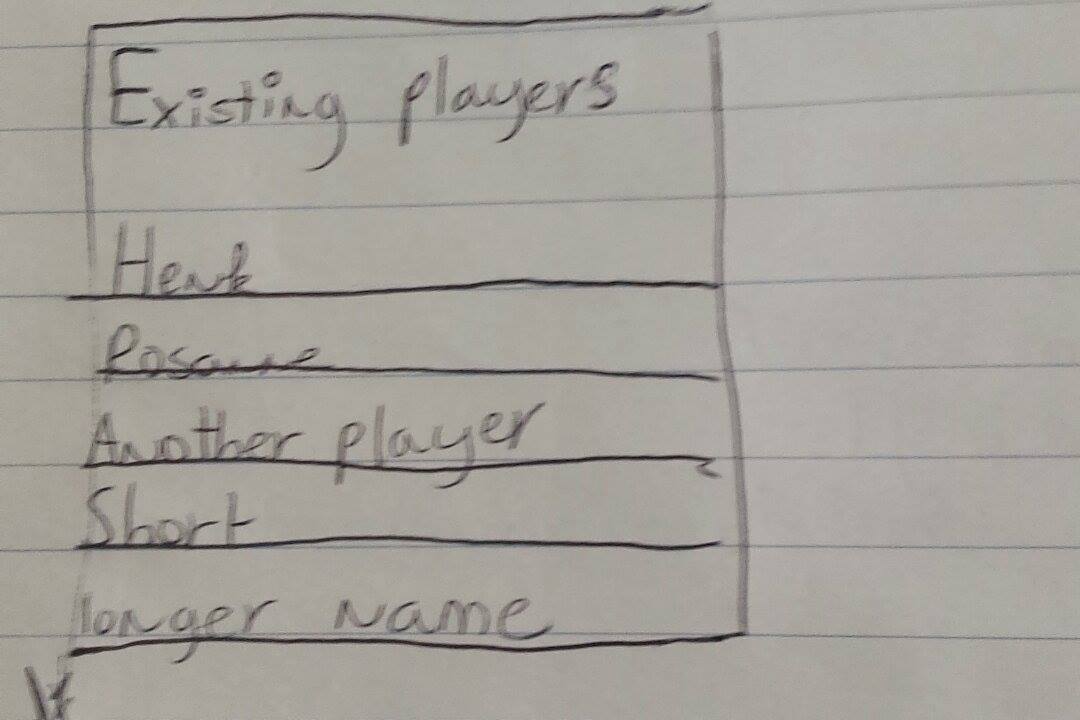 Existing players
Henk
Rosanne
Another player
Short
longer name